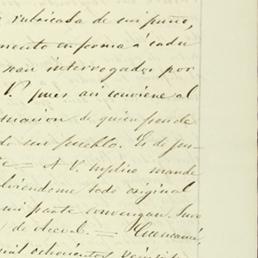 rubricada de mi puño,
mento en forma á cada
sean interrogados por
V. pues asi conviene al
de quien pende
do su pueblo. Es de jus-
A V. suplico mande
todo original
mi parte convengan. Juro
de
mil ochocientos